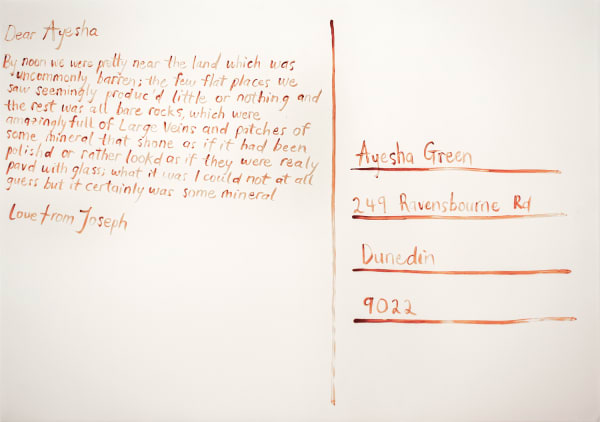 Dear Ayesha
By noon we were pretty near the land which was
uncommonly barren; the few flat places we
saw seemingly produc'd little or nothing and
the rest was all bare rocks, which were
amazingly full of Large Veins and patches of
some mineral that shone as if it had been
polishd or rather lookd as if they were realy
pavd with glass; what it was I could not at all
guess but it certainly was some mineral
Love from Joseph
Ayesha Green
249 Ravensbourne Rd
Dunedin
9022